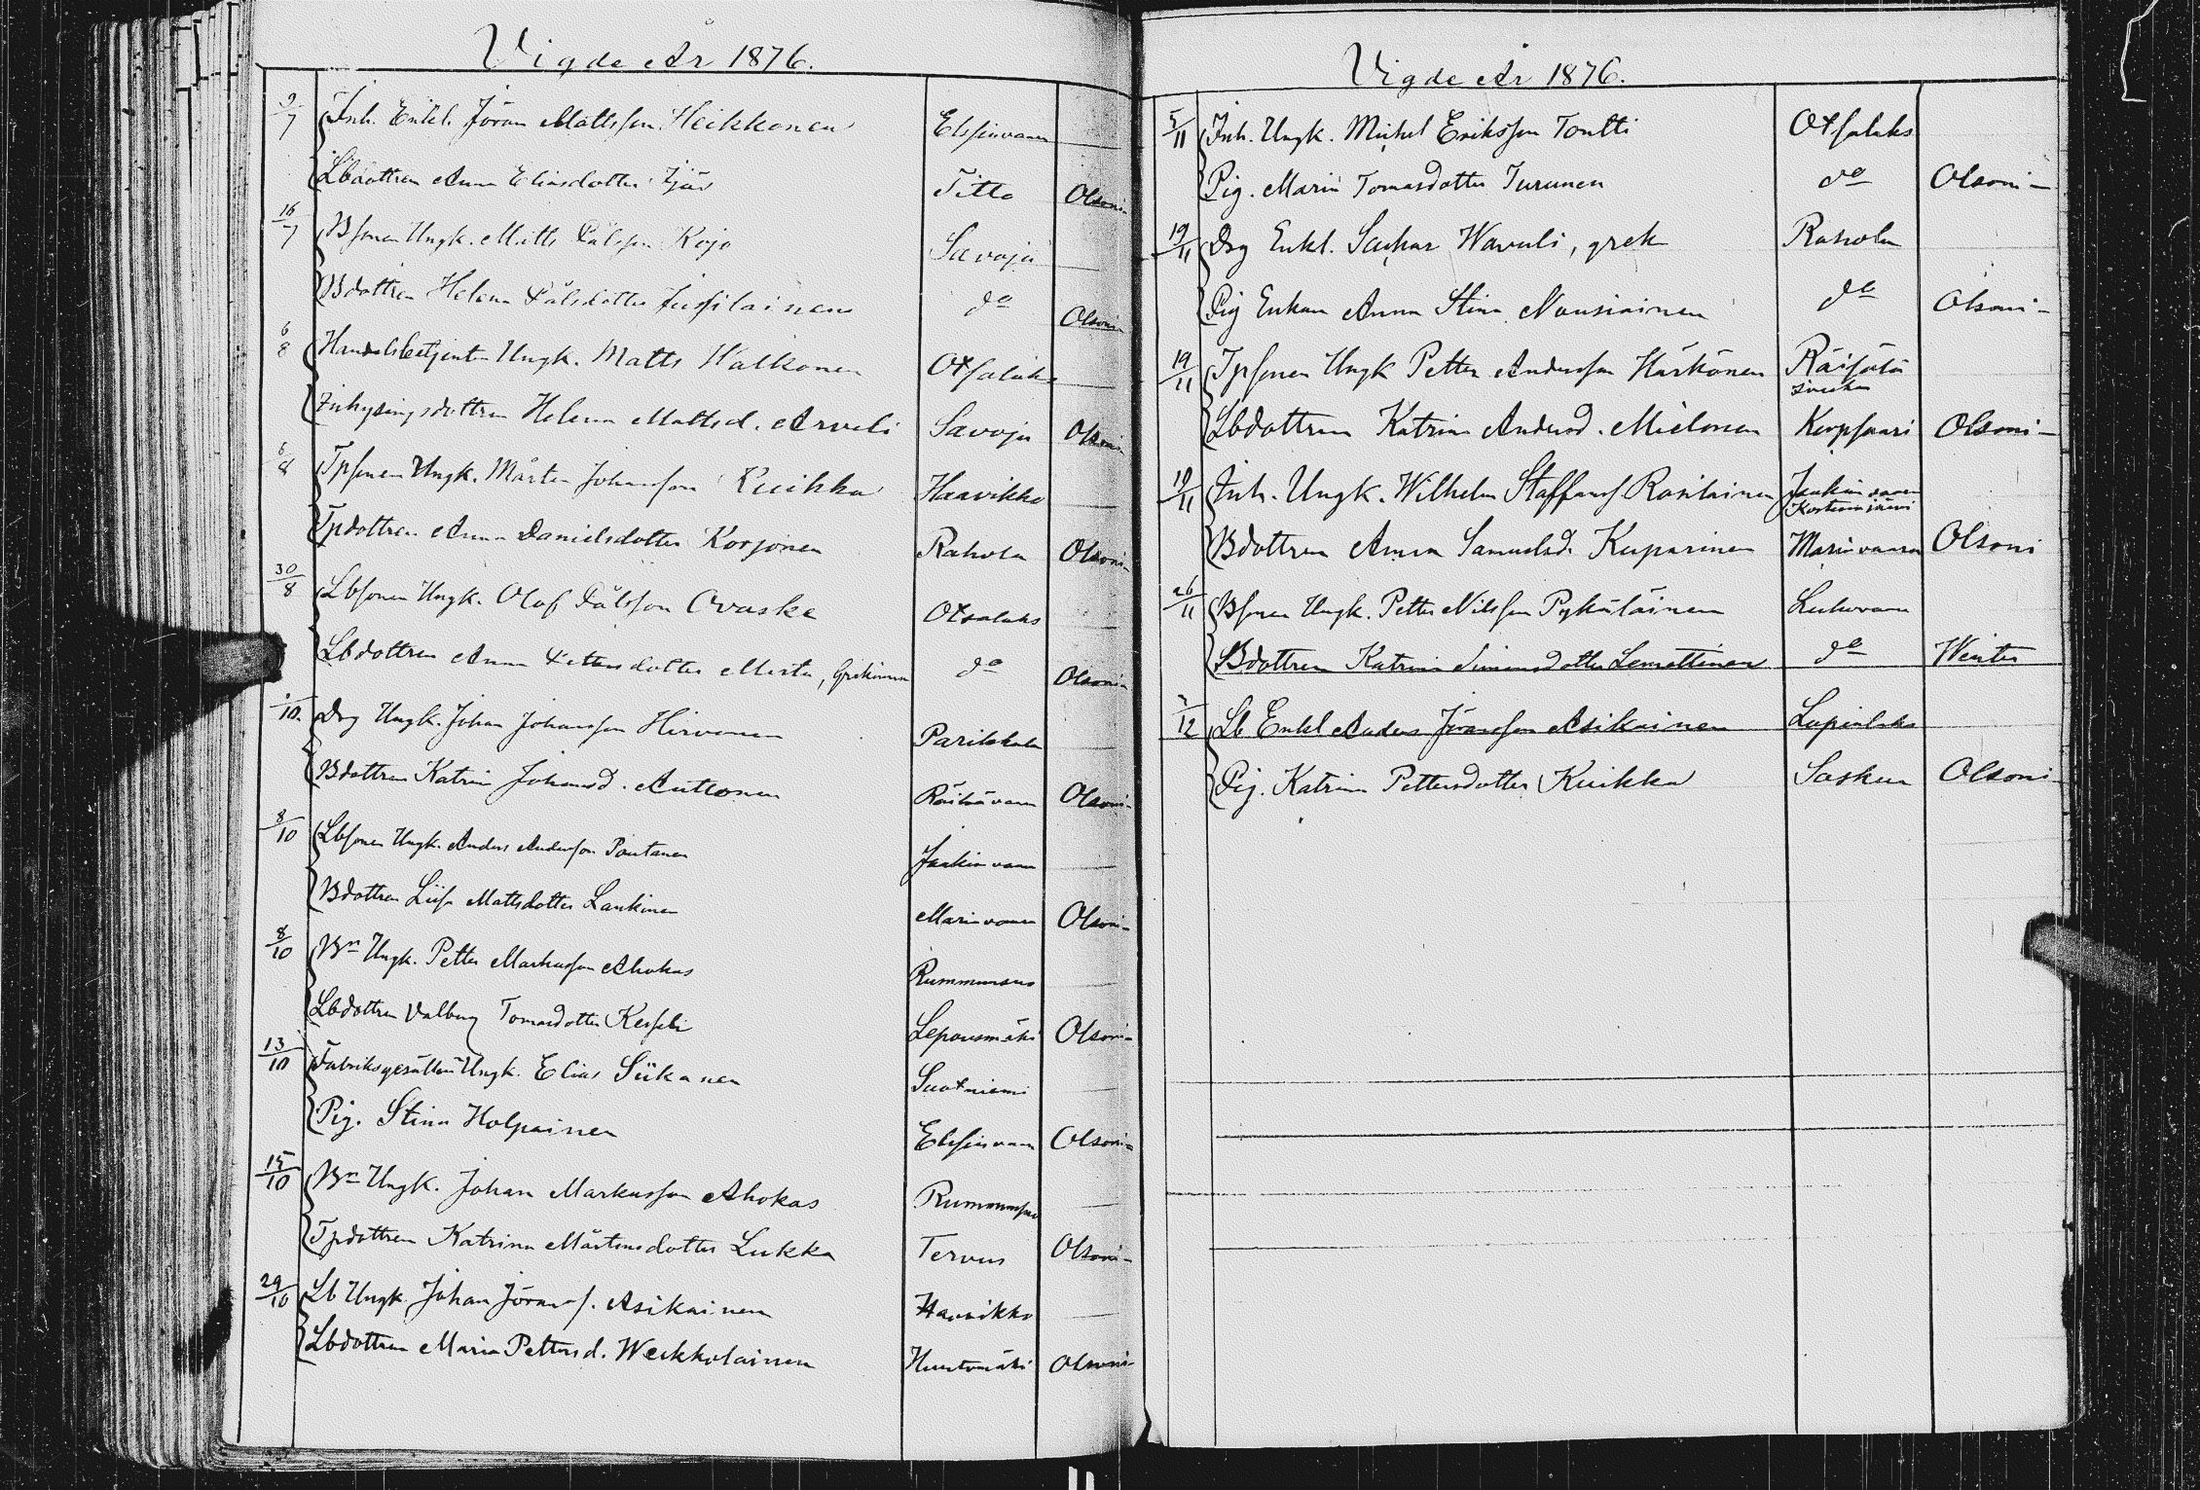 Vigde År 1876.
9/7 Inh. Enkl. Jöran Mattsson Heikkonen Elssinvaara
Lbdottren Anna Eliasdotter Titto Olsoni
16/7 Bsonen Ungk. Matts Pålsson Kojo Savoja
Bdottren Helena Pålsdotter Jussilainen do Olsoni
6/8 Handelsbetjenten Ungk. Matts Walkonen Oxsalaks
Inhysingsdottren Helena Mattsd. Arveli Savoja Olsoni
6/8 Tpsonen Ungk. Mårten Johansson Kuikka Haavikko
Tpdottren Anna Danielsdotter Korjonen Rahola Olsoni-
30/8 Lbsonen Ungk. Olof Pålsson Ovaska Oxsalaks
Lbdottren Anna Pettersdotter do Olsoni-
/10. Drg Ungk. Johan Johansson Hirvonen Parikkala
Bdottren Katrin Johansd. Auttonen Olsoni-
8/10 Lbsonen Ungk. Anders Andersson Pontanen Jaakinvaara
Bdottren Liisa Mattsdotter Laukinen Marinvaara Olsoni-
8/10 Bn Ungk. Petter Markusson Ahokas Rummunsuo
Lbdottren Valborg Tomasdotter Kesseli Leponsmäki Olsoni-
13/10 Ungk. Elias Siikanen Suotniemi
Pig. Stina Holpainen Elssinvaara Olsoni-
15/10 Bn Ungk. Johan Markusson Ahokas Rummunsuo
Tpdottren Katrina Mårtensdotter Lukka Tervus Olsoni-
29/10 Lb Ungk. Johan Jöranss. Asikainen Haavikko
Lbdottren Maria Pettersd. Weikkolainen Olsoni-
Vigde År 1876.
5/11 Inh. Ungk. Michel Eriksson Tontti Oxsalaks
Pig. Maria Tomasdotter Turunen do Olsoni-
19/11 Drg Enkl. Sachar Wavuli, grek Rahola
Pig Enkan Anna Stina Nousiainen do Olsoni-
19/11 Tpsonen Ungk Petter Andersson Härkönen Räisälä
socken
Lbdottren Katrina Andersd. Mielonen Korpsaari Olsoni-
19/11 Inh. Ungk. Wilhelm Staffanss. Rosilainen Jaakinvaara
Bdottren Anna Samuelsd. Kuparinen Marinvaara Olsoni
26/11 Bsonen Ungk. Petter Nilsson Pykäläinen
Bdottren Katrina Simonsdotter Lemettinen do Winter
/12 Lb Enkl Anders Jöransson Asikainen Lapinlaks
Pig. Katrina Pettersdotter Kuikka Saskua Olsoni-